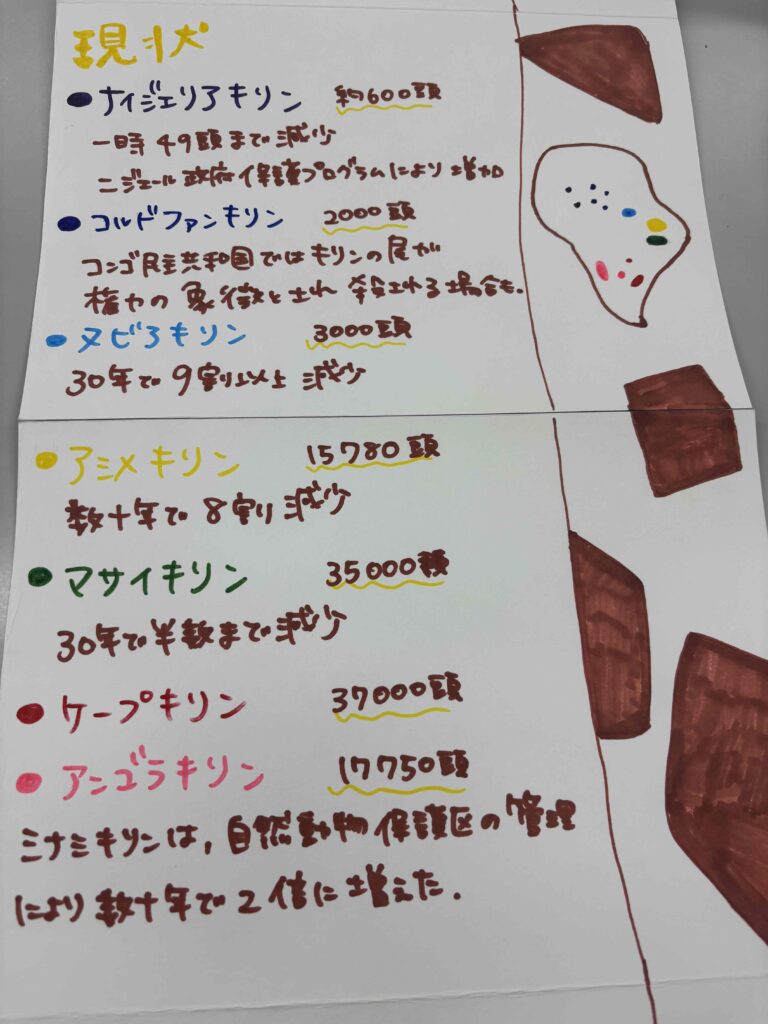 現状
●ナイジェリアキリン 約600頭
一時49頭まで減少
ニジェール政府保護プログラムにより増加
●コルドファンキリン 2000頭
コンゴ民主共和国ではキリンの尾が
権力の象徴とされ殺される場合も.
●ヌビアキリン 3000頭
30年で9割以上減少
●アミメキリン 15780頭
数十年で8割減少
●マサイキリン 35000頭
30年で半数まで減少
●ケープキリン 37000頭
●アンゴラキリン 17750頭
ミナミキリンは,自然動物保護区の管理
により数十年で2倍に増えた.